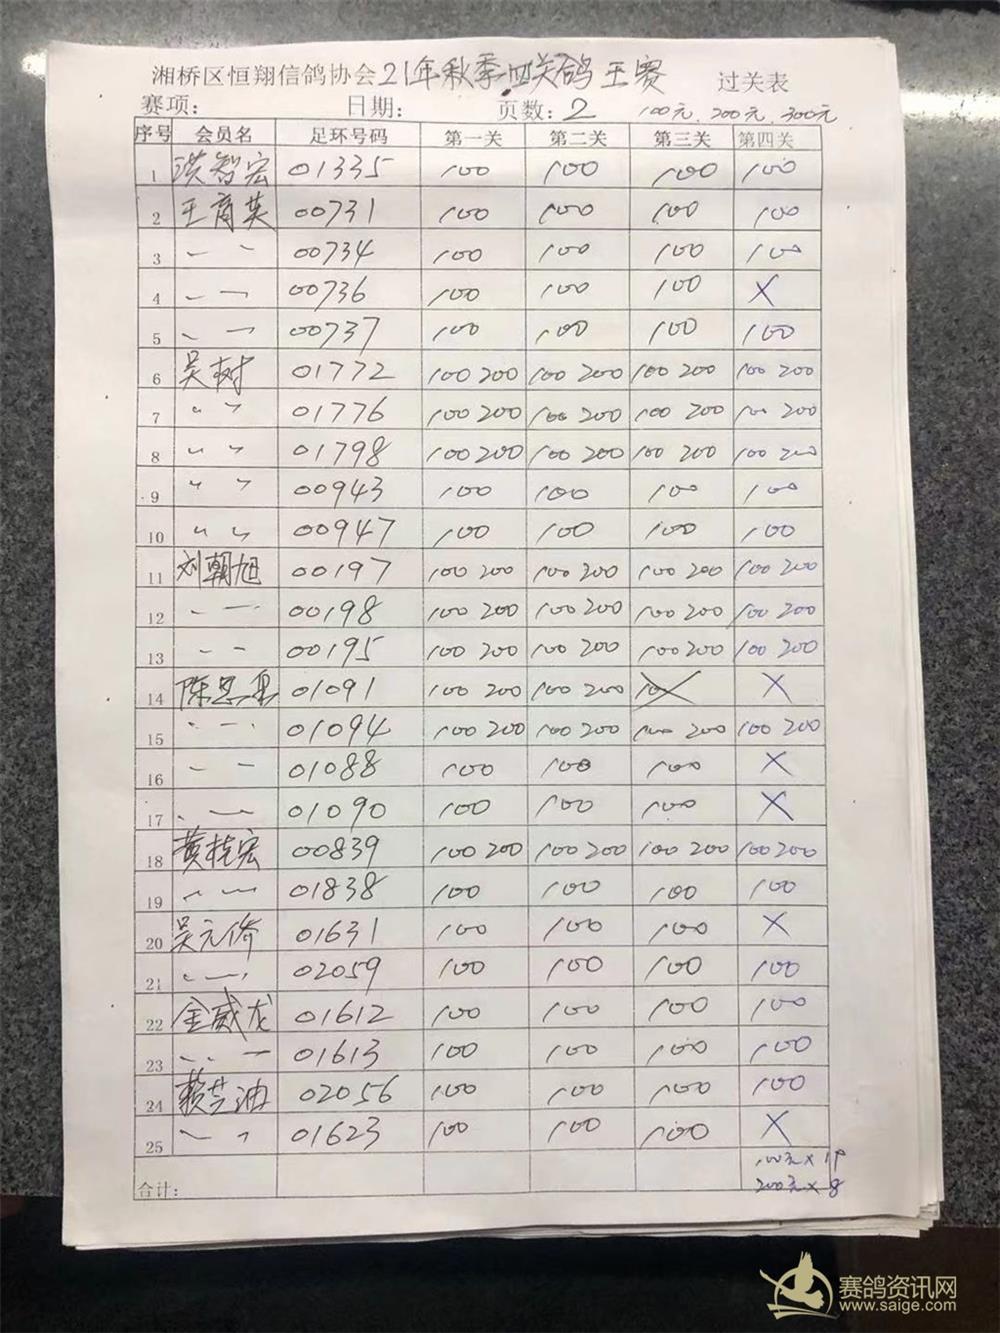 湘桥区恒翔信鸽协会21年秋季四关鸽王赛 过关表
赛项: 日期: 页数:2 100元、200元、300元
序号 会员名 足环号码 第一关 第二关 第三关 第四关
1 洪智宏 01335 100 100 100 100
2 王育英 00731 100 100 100 100
3 〃 〃 00734 100 100 100 100
4 〃 〃 00736 100 100 100 ×
5 〃 〃 00737 100 100 100 100
6 吴树 01772 100 200 100 200 100 200 100 200
7 〃 〃 01776 100 200 100 200 100 200 100 200
8 〃 〃 01798 100 200 100 200 100 200 100 200
9 〃 〃 00943 100 100 100 100
10 〃 〃 00947 100 100 100 100
11 刘朝旭 00197 100 200 100 200 100 200 100 200
12 〃 〃 00198 100 200 100 200 100 200 100 200
13 〃 〃 00195 100 200 100 200 100 200 100 200
14 陈 01091 100 200 100 200 100 ×
15 〃 〃 01094 100 200 100 200 100 200 100 200
16 〃 〃 01088 100 100 100 ×
17 〃 〃 01090 100 100 100 ×
18 黄桂宏 00839 100 200 100 200 100 200 100 200
19 〃 〃 01838 100 100 100 100
20 吴元侨 01631 100 100 100 ×
21 〃 〃 02059 100 100 100 100
22 金威龙 01612 100 100 100 100
23 〃 〃 01613 100 100 100 100
24 赖芝迪 02056 100 100 100 100
25 〃 〃 01623 100 100 100 ×
100元×19
合计: 200元×8
赛鸽资讯网
www.saige.com